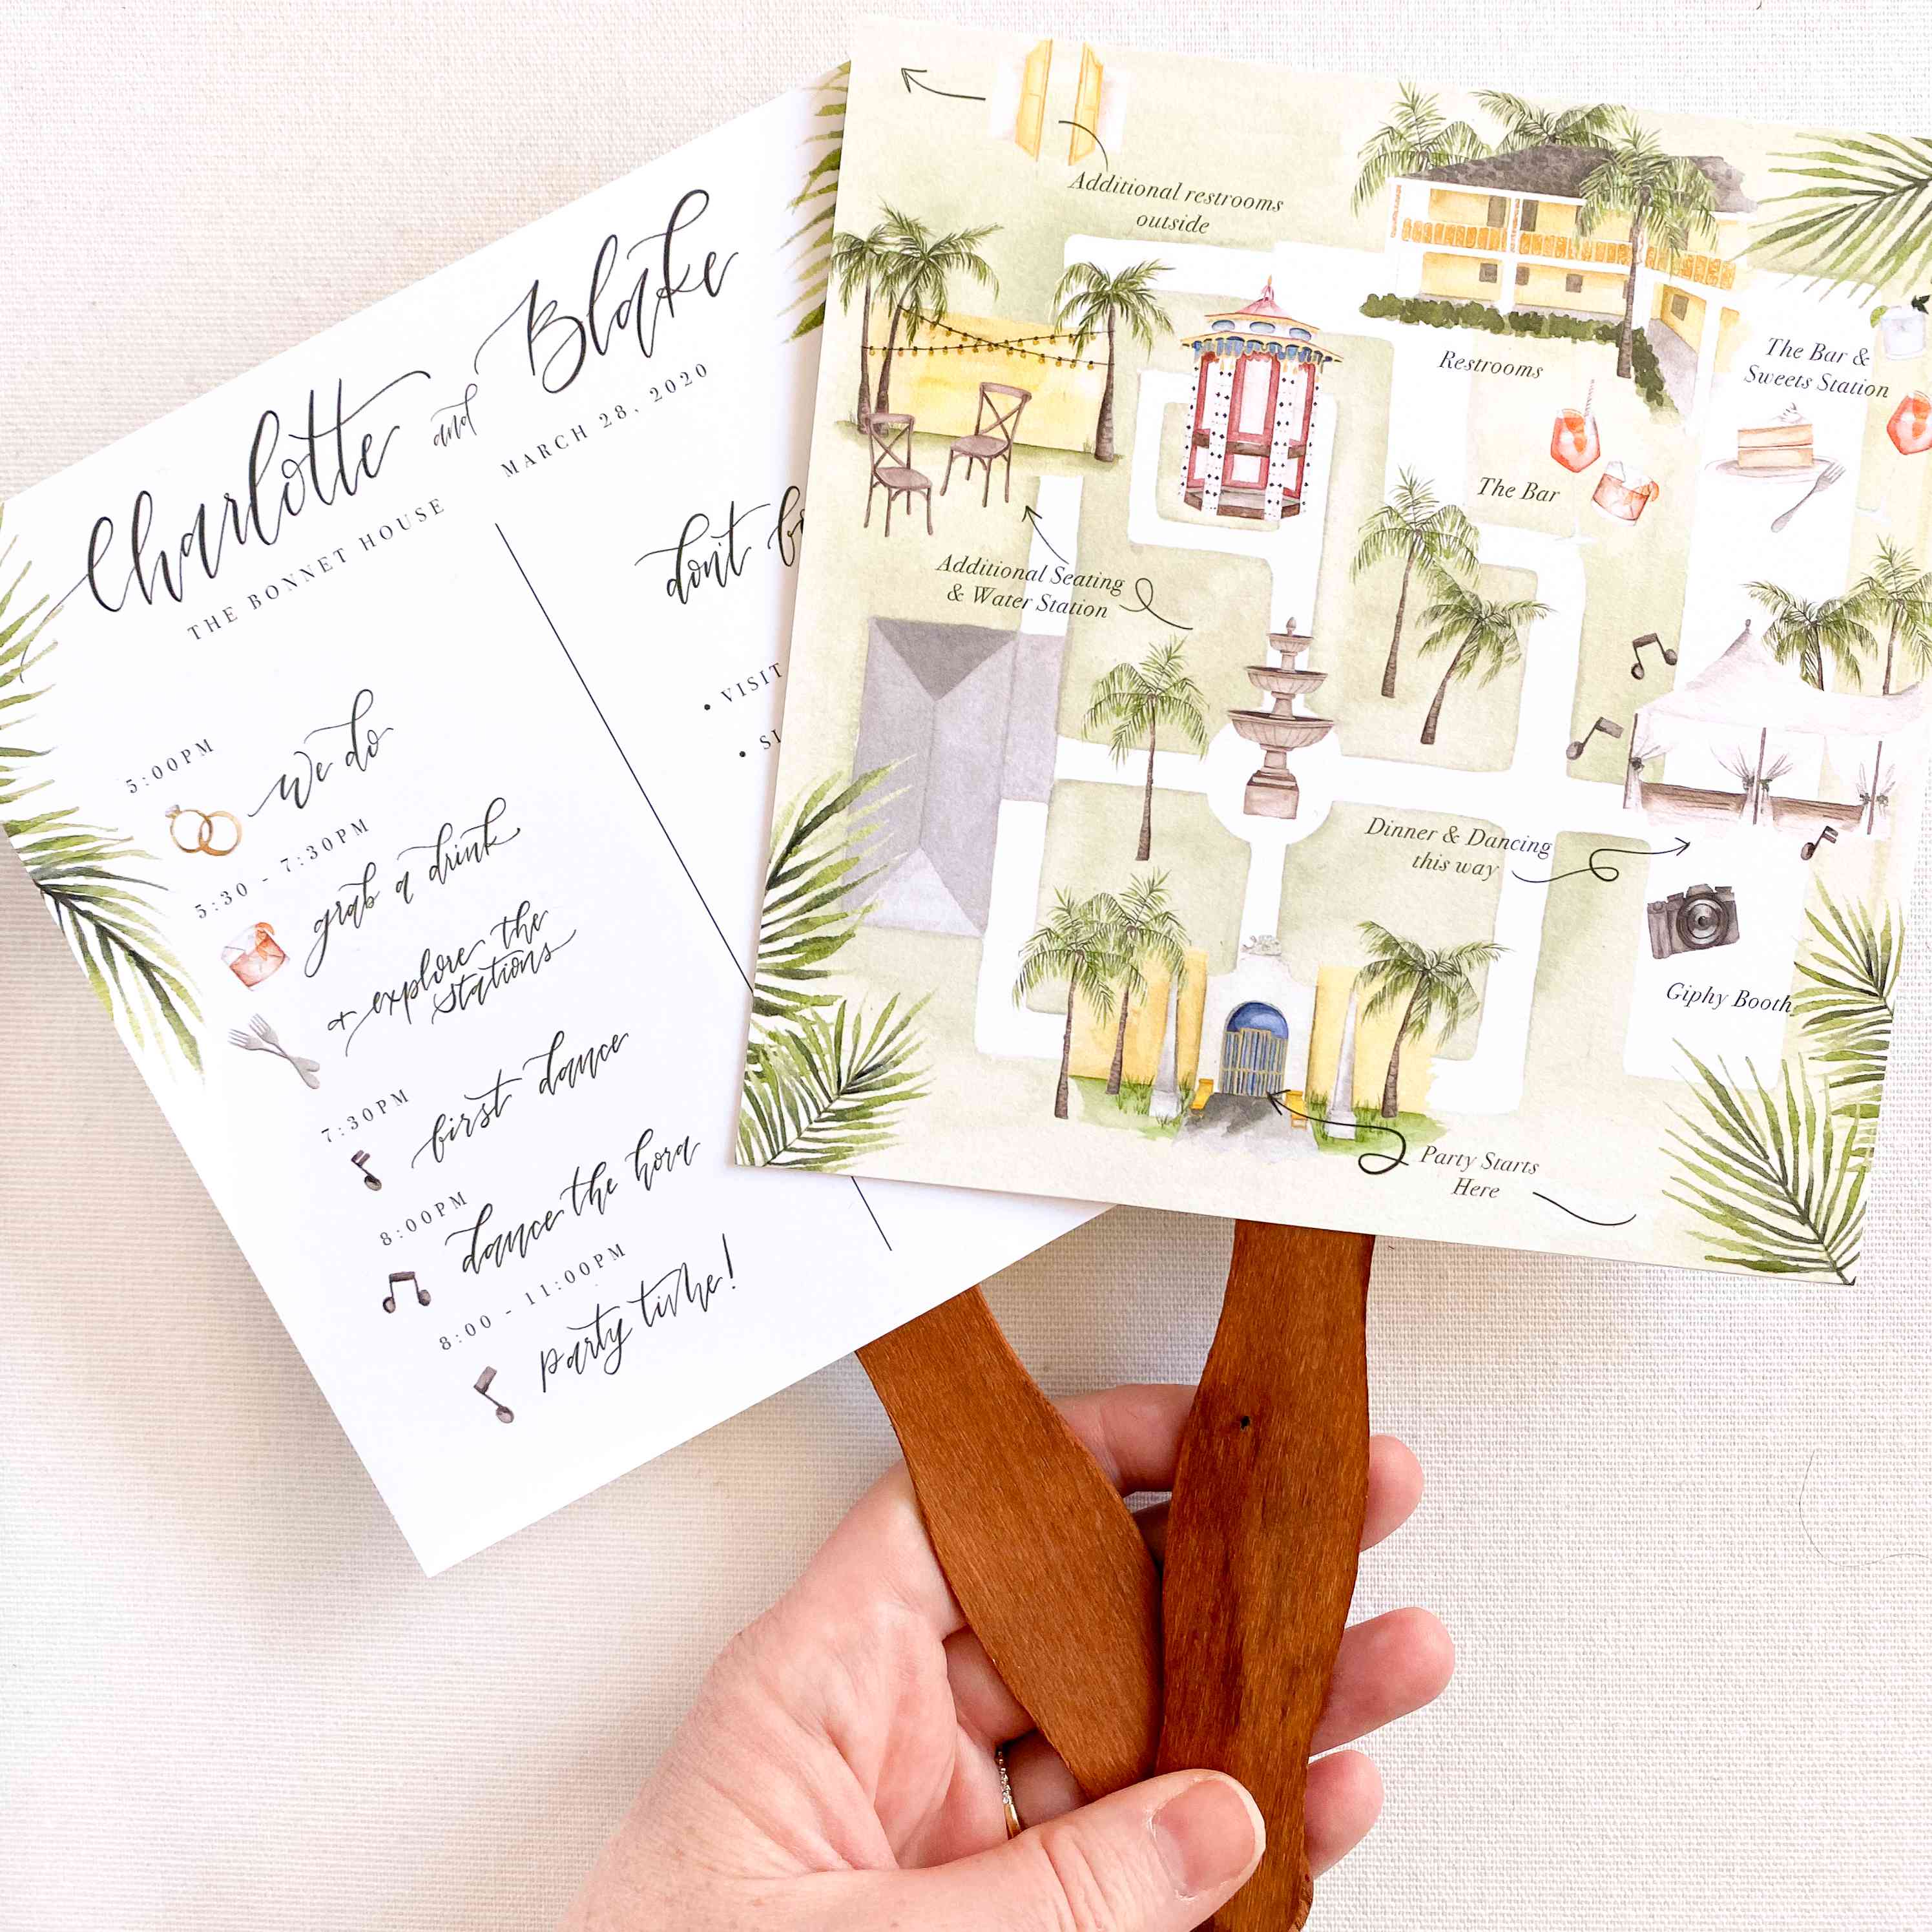 Charlotte and Blake
THE BONNET HOUSE
MARCH 28, 2020
5:00PM
we do
5:30 - 7:30PM
grab a drink
+ explore the
stations
7:30PM
first dance
8:00PM
dance the hora
8:00 - 11:00PM
party time!
don't
• VISIT
•
Additional restrooms
outside
Restrooms
The Bar &
Sweets Station
The Bar
Additional Seating
& Water Station
Dinner & Dancing
this way
Giphy Booth
Party Starts
Here